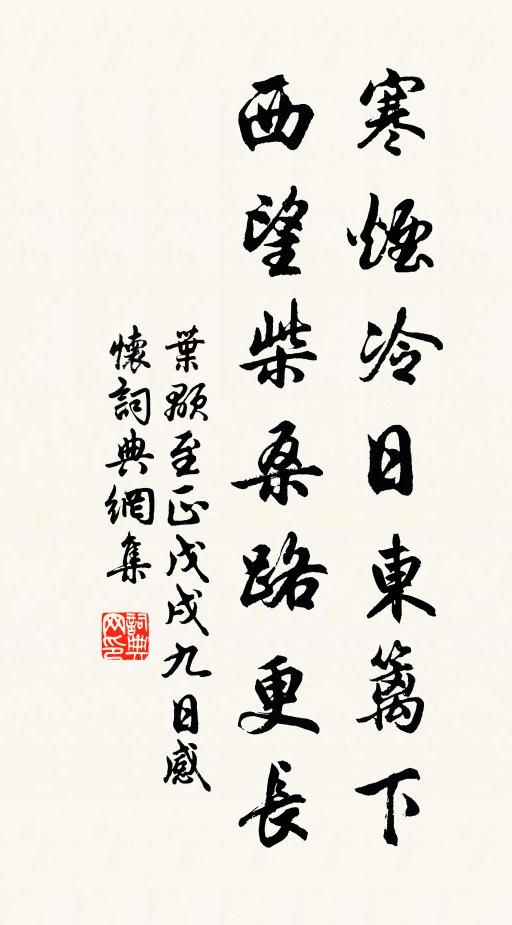 寒煙冷日東籬下
西望柴桑路更長
葉顒至正戊戌九日感
懷詞典網集
詞典
网印